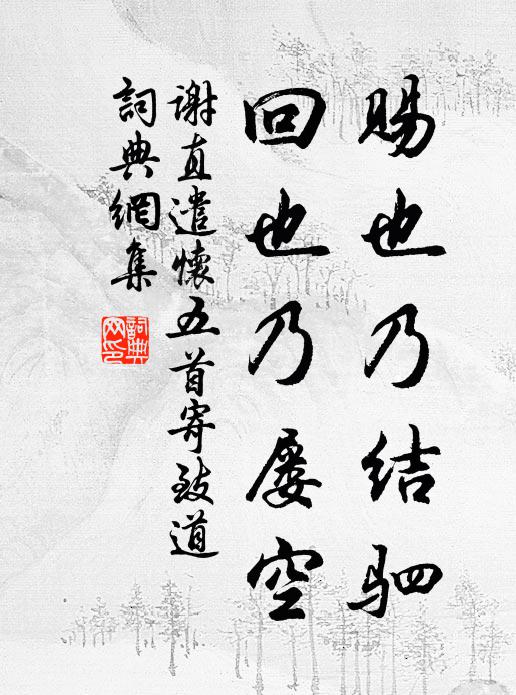 赐也乃结驷
回也乃屡空
謝直遣懷五首寄致道
詞典網集
詞典
网印